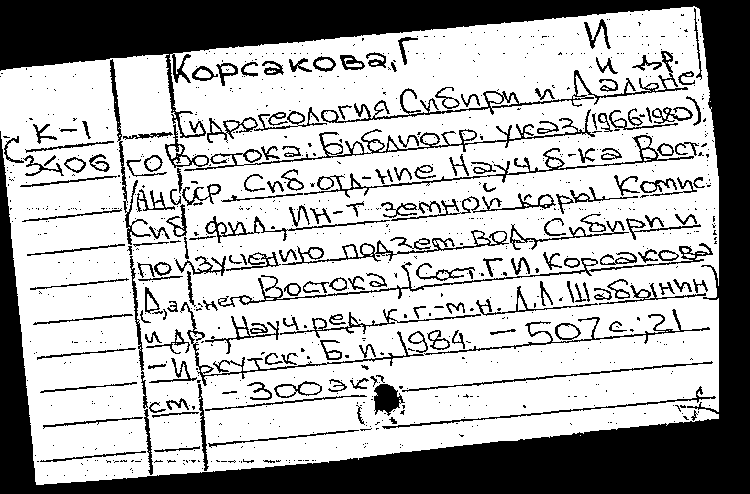 Корсакова, Г И
и др.
К-1
С 3406
Гидрогеология Сибири и Дальне-
го Востока: Библиогр. указ. (1966-1980)
/АНСССР. Сиб. отд-ние, Науч. б-ка Вост.-
Сиб. фил., Ин-т земной коры. Комис.
по изучению подзем. вод, Сибири и
Дальнего Востока; [Сост. Г.И. Корсакова
и др.; Науч. ред. к.г.-м.н. Л.Л. Шабынин]
- Иркутск: Б. и., 1984. - 507 с.; 21
ст. - 300 экз